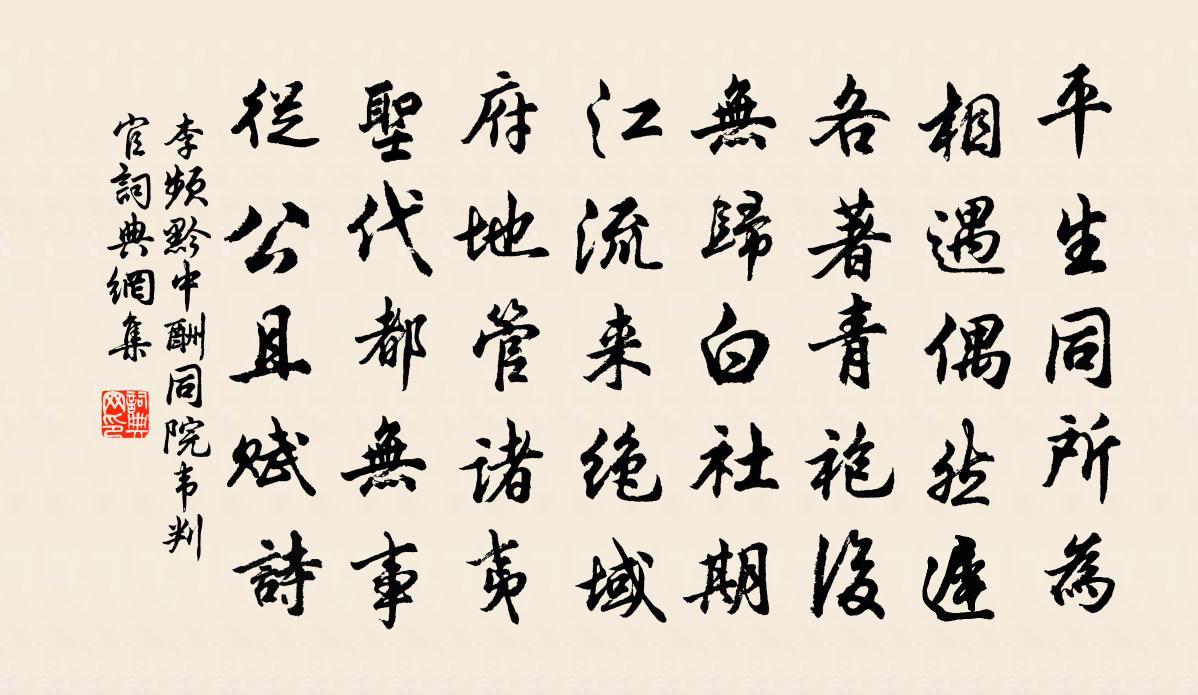 平生同所為
相遇偶然遲
各著青袍後
無歸白社期
江流来絶域
府地管諸夷
聖代都無事
從公且賦詩
李頻黔中酬同院韦判
官詞典網集
詞典
网印